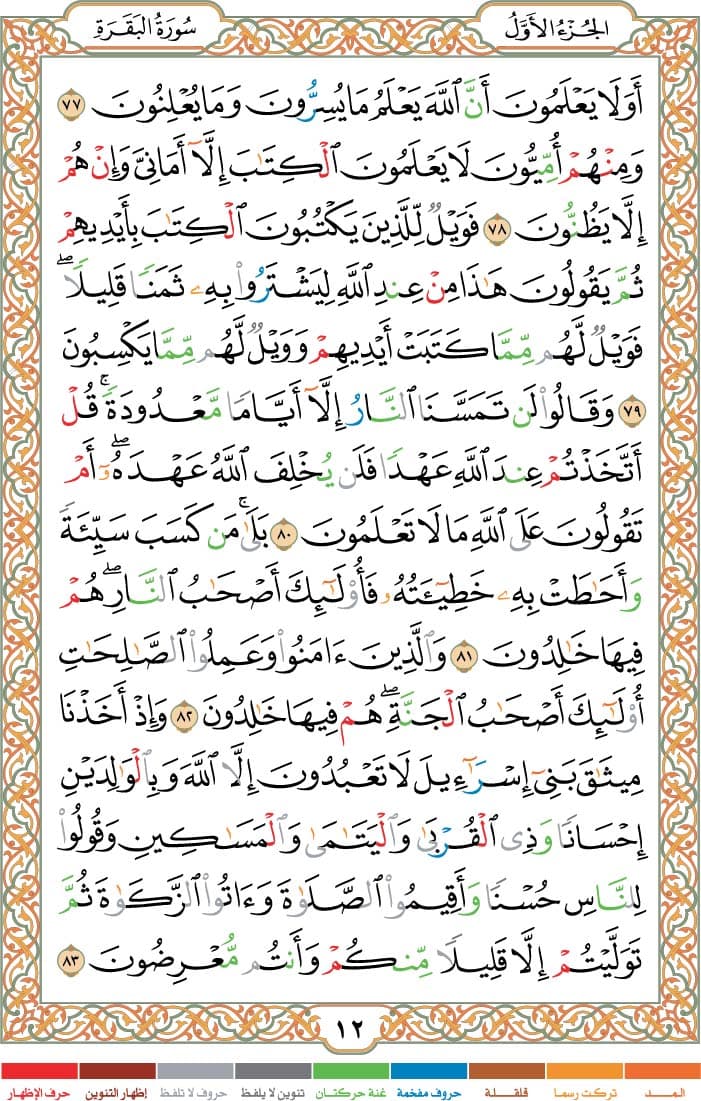 الجُزْءُ الأَوَّلُ
سُورَةُ البَقَرَةِ
أَوَلَا يَعْلَمُونَ أَنَّ ٱللَّهَ يَعْلَمُ مَا يُسِرُّونَ وَمَا يُعْلِنُونَ ٧٧
وَمِنْهُمْ أُمِّيُّونَ لَا يَعْلَمُونَ ٱلْكِتَٰبَ إِلَّآ أَمَانِيَّ وَإِنْ هُمْ
إِلَّا يَظُنُّونَ ٧٨ فَوَيْلٌ لِّلَّذِينَ يَكْتُبُونَ ٱلْكِتَٰبَ بِأَيْدِيهِمْ
ثُمَّ يَقُولُونَ هَٰذَا مِنْ عِندِ ٱللَّهِ لِيَشْتَرُوا۟ بِهِۦ ثَمَنًا قَلِيلًا ۖ
فَوَيْلٌ لَّهُم مِّمَّا كَتَبَتْ أَيْدِيهِمْ وَوَيْلٌ لَّهُم مِّمَّا يَكْسِبُونَ
٧٩ وَقَالُوا۟ لَن تَمَسَّنَا ٱلنَّارُ إِلَّآ أَيَّامًا مَّعْدُودَةً ۚ قُلْ
أَتَّخَذْتُمْ عِندَ ٱللَّهِ عَهْدًا فَلَن يُخْلِفَ ٱللَّهُ عَهْدَهُۥٓ ۖ أَمْ
تَقُولُونَ عَلَى ٱللَّهِ مَا لَا تَعْلَمُونَ ٨٠ بَلَىٰ ۚ مَن كَسَبَ سَيِّئَةً
وَأَحَٰطَتْ بِهِۦ خَطِيٓـَٔتُهُۥ فَأُو۟لَٰٓئِكَ أَصْحَٰبُ ٱلنَّارِ ۖ هُمْ
فِيهَا خَٰلِدُونَ ٨١ وَٱلَّذِينَ ءَامَنُوا۟ وَعَمِلُوا۟ ٱلصَّٰلِحَٰتِ
أُو۟لَٰٓئِكَ أَصْحَٰبُ ٱلْجَنَّةِ ۖ هُمْ فِيهَا خَٰلِدُونَ ٨٢ وَإِذْ أَخَذْنَا
مِيثَٰقَ بَنِىٓ إِسْرَٰٓءِيلَ لَا تَعْبُدُونَ إِلَّا ٱللَّهَ وَبِٱلْوَٰلِدَيْنِ
إِحْسَانًا وَذِى ٱلْقُرْبَىٰ وَٱلْيَتَٰمَىٰ وَٱلْمَسَٰكِينِ وَقُولُوا۟
لِلنَّاسِ حُسْنًا وَأَقِيمُوا۟ ٱلصَّلَوٰةَ وَءَاتُوا۟ ٱلزَّكَوٰةَ ثُمَّ
تَوَلَّيْتُمْ إِلَّا قَلِيلًا مِّنكُمْ وَأَنتُم مُّعْرِضُونَ ٨٣
١٢
المــــد تركت رسما قلقـلـة حروف مفخمة غنة حركتان تنوين لا يلفظ حروف لا تلفظ إظهار التنوين حرف الإظهار